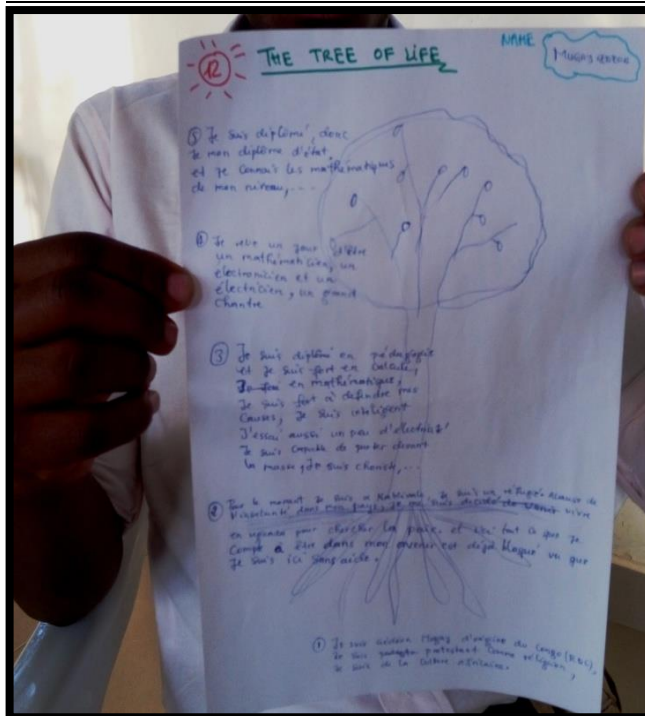 12
THE TREE OF LIFE
NAME
⑤ Je suis diplômé, donc
Je mon diplôme d'état
et je connais les mathématiques
de mon niveau, ...
④ Je reve un jour d'être
un mathématicien, un
électronicien et un
électricien, un grand
chantre
③ Je suis diplômé en pédagogie
et je suis fort en calcule,
en mathématique,
Je suis fort à défendre mes
causes, Je suis intelligent
J'essai aussi un peu d'électricité
Je suis capable de parler devant
la masse, Je suis
② Pour le moment Je suis a Je suis un réfugié acause de
l'insécurité dans mon pays, je me suis décidé de venir vivre
en uganda pour chercher la paix. et tout ce que je
compte à être dans mon avenir est déjà bloqué vu que
Je suis ici sans aide.
① Je suis d'origine du Congo (RDC),
Je suis protestant comme réligion,
Je suis de la culture africaine.